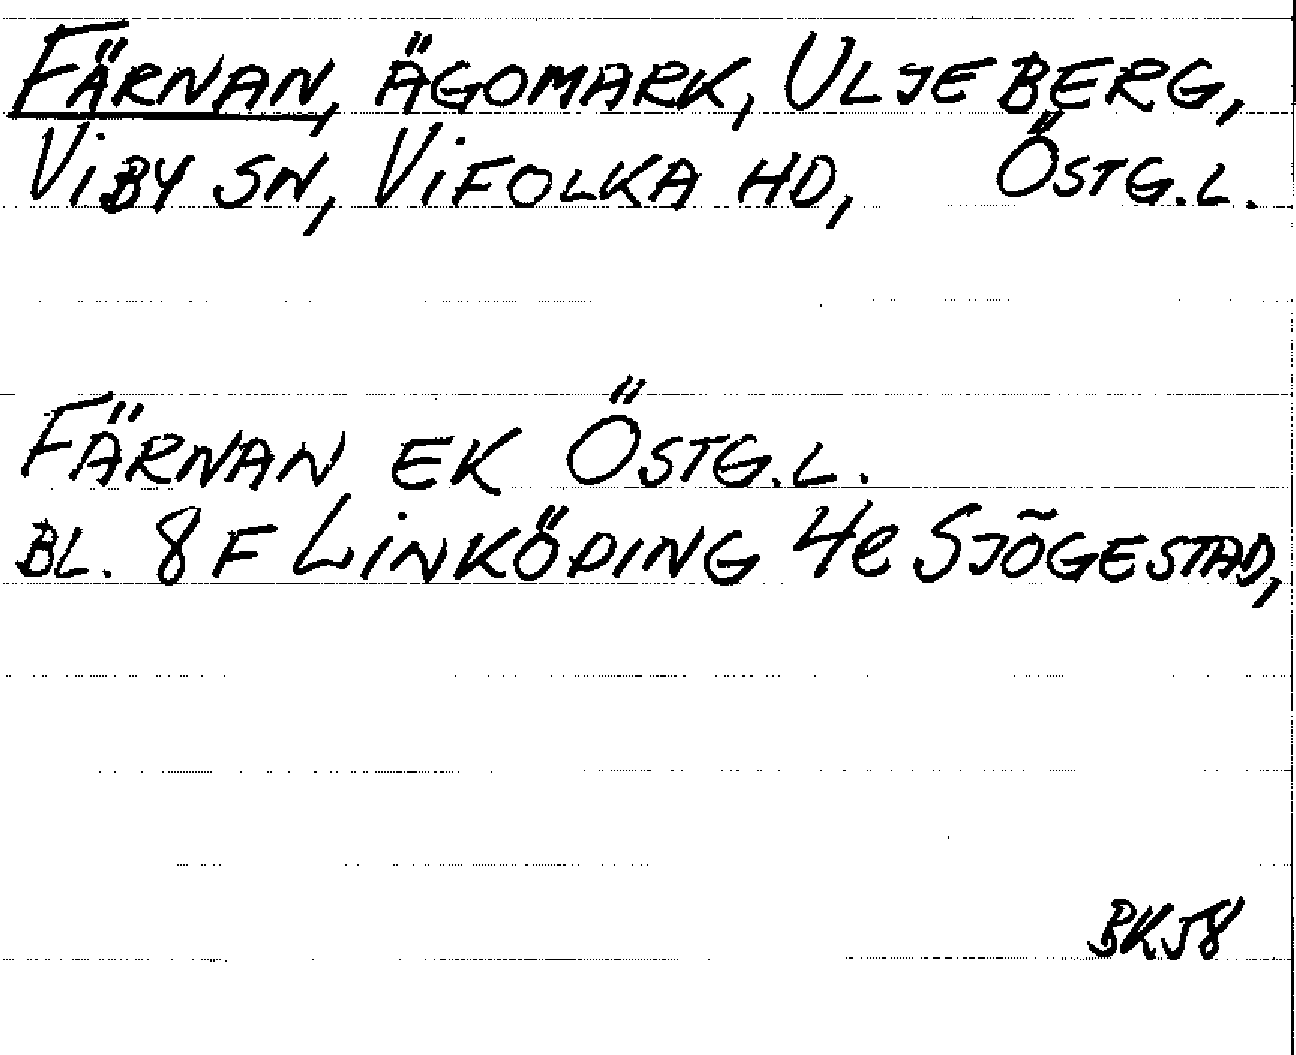 FÄRNAN, ÄGOMARK, ULJEBERG,
VIBY SN, VIFOLKA HD, ÖSTG.L.
FÄRNAN EK ÖSTG.L.
BL. 8F LINKÖPING 4e SJÖGESTAD,
BKJ8